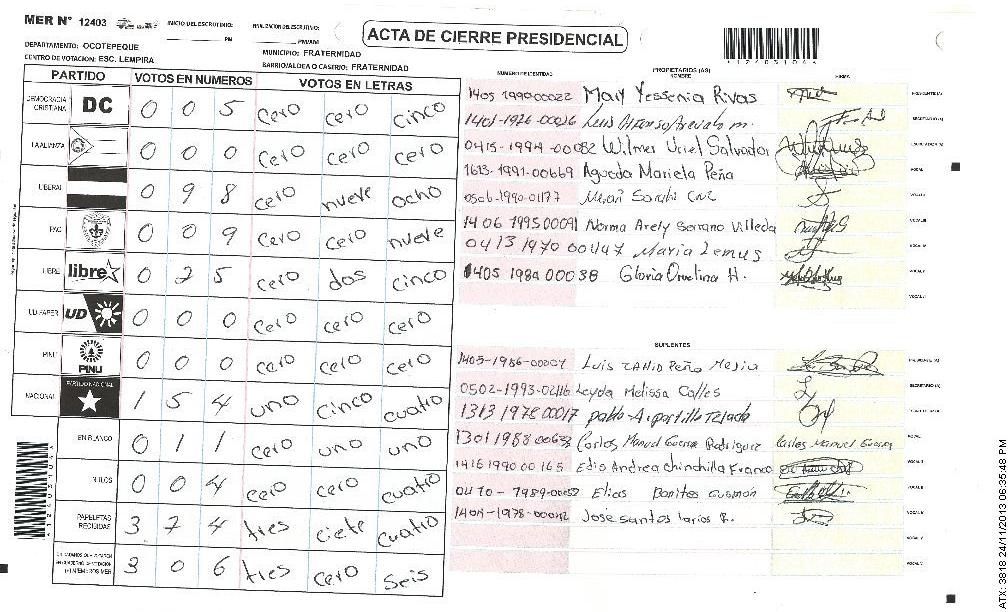 MER Nº 12403
INICIO DEL ESCRUTINIO:
PM
FINALIZACION DEL ESCRUTINIO:
PM/AM
ACTA DE CIERRE PRESIDENCIAL
DEPARTAMENTO: OCOTEPEQUE
MUNICIPIO: FRATERNIDAD
CENTRO DE VOTACION: ESC. LEMPIRA
BARRIO/ALDEA O CASERIO: FRATERNIDAD
PARTIDO VOTOS EN NUMEROS VOTOS EN LETRAS
DEMOCRACIA CRISTIANA DC 0 0 5 cero cero cinco
LA ALIANZA 0 0 0 cero cero cero
LIBERAL 0 9 8 cero nueve ocho
PAC 0 0 9 cero cero nueve
LIBRE libre 0 2 5 cero dos cinco
UD-FAPER UD 0 0 0 cero cero cero
PINU PINU 0 0 0 cero cero cero
NACIONAL PARTIDO NACIONAL 1 5 4 uno cinco cuatro
EN BLANCO 0 1 1 cero uno uno
NULOS 0 0 4 cero cero cuatro
PAPELETAS RECIBIDAS 3 7 4 tres ciete cuatro
3 0 6 tres cero seis
NUMERO DE IDENTIDAD
PROPIETARIOS (AS)
NOMBRE
FIRMA
1405 1990-00022 Mary Yessenia Rivas PRESIDENTE (A)
1401-1926-00026 Luis Alfonso Arevalo m. SECRETARIO (A)
0415-1994-00082 Wilmer Uriel Salvador ESCRUTADOR (A)
1613-1991-00669 Agueda Mariela Peña VOCAL
0506-1990-01177
1406 1995 00091 Norma Arely Serrano Villeda
0413 1970 00147 Maria Lemus
1405 1984 00038 Gloria Omelina H.
SUPLENTES
1403-1986-00007 Luis Peño Mejia PRESIDENTE (A)
0502-1993-02116 Leyda Melissa Calles SECRETARIO (A)
1313 1978 00017 pablo A. portillo Tejada
1301 1988 00633 Carlos Manuel Guerra Rodriguez Carlos Manuel Guerra VOCAL
1416 1990 00165 Edis Andrea Chinchilla Franco
0410-1989-00052 Elias Benites Guzmán
1401-1978-00012 Jose santos larios R.
ATX: 3818 24/11/2013 06:35:48 PM